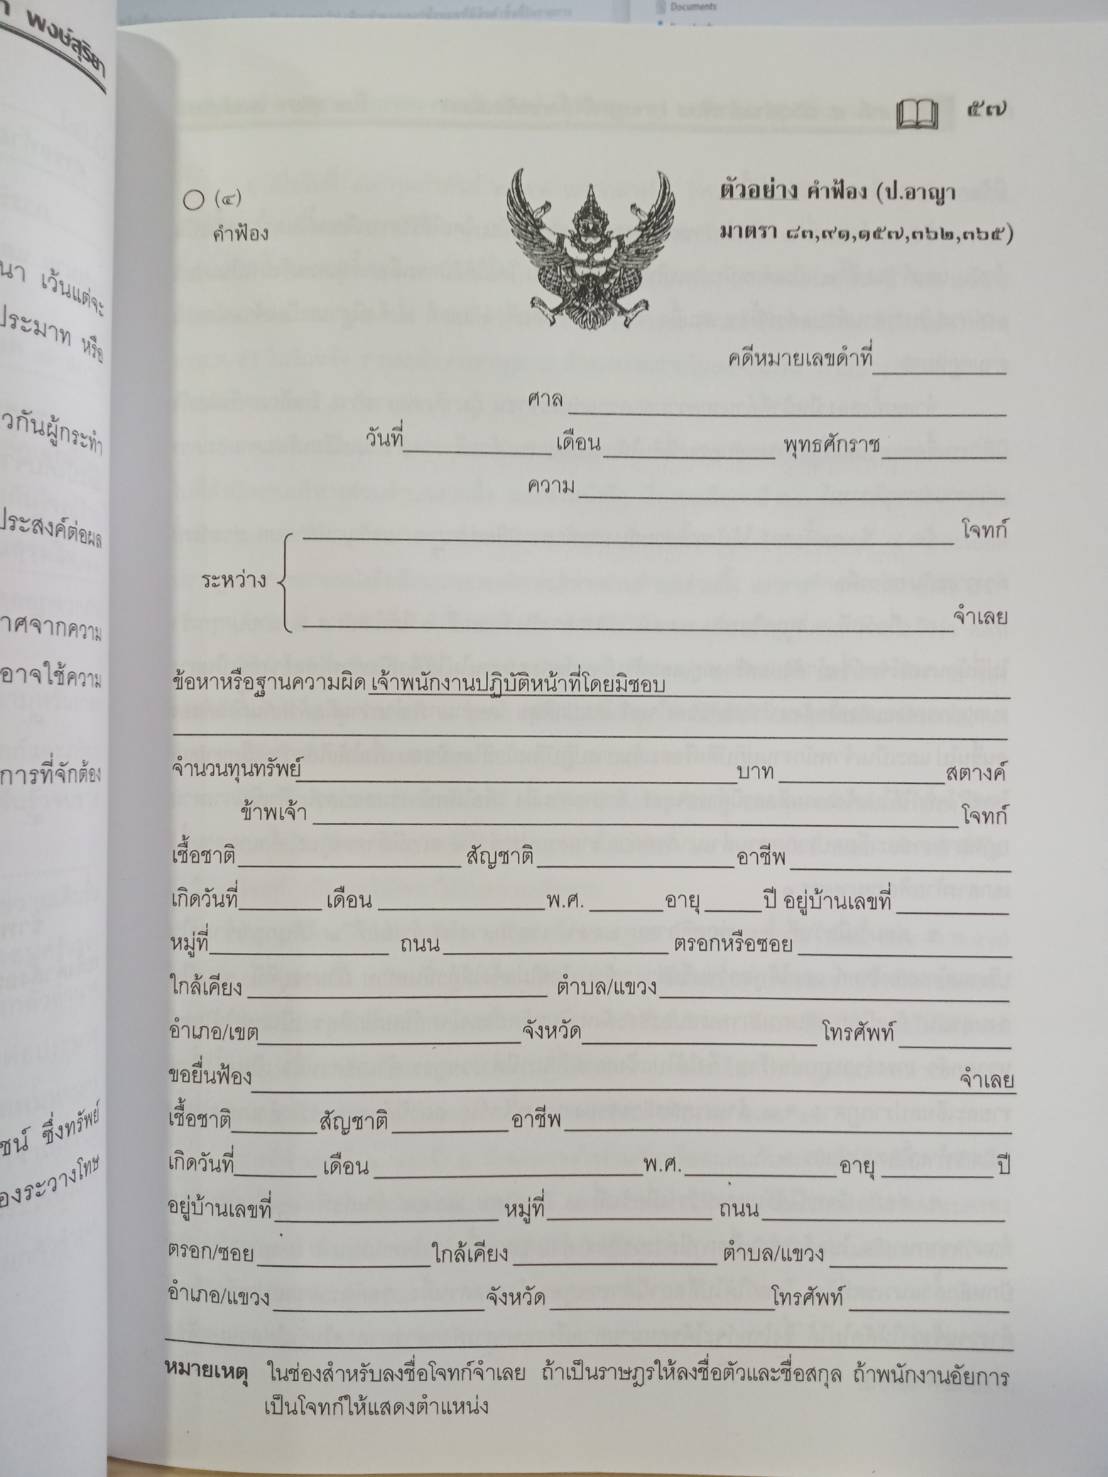 Documents
พงษ์สุริยา
๕๗
ตัวอย่าง คำฟ้อง (ป.อาญา
มาตรา ๘๓,๙๑,๑๕๗,๓๖๒,๓๖๕)
(๔)
คำฟ้อง
คดีหมายเลขดำที่
ศาล
วันที่ เดือน พุทธศักราช
ความ
โจทก์
ระหว่าง
จำเลย
ข้อหาหรือฐานความผิด เจ้าพนักงานปฏิบัติหน้าที่โดยมิชอบ
จำนวนทุนทรัพย์ บาท สตางค์
ข้าพเจ้า โจทก์
เชื้อชาติ สัญชาติ อาชีพ
เกิดวันที่ เดือน พ.ศ. อายุ ปี อยู่บ้านเลขที่
หมู่ที่ ถนน ตรอกหรือซอย
ใกล้เคียง ตำบล/แขวง
อำเภอ/เขต จังหวัด โทรศัพท์
ขอยื่นฟ้อง จำเลย
เชื้อชาติ สัญชาติ อาชีพ
เกิดวันที่ เดือน พ.ศ. อายุ ปี
อยู่บ้านเลขที่ หมู่ที่ ถนน
ตรอก/ซอย ใกล้เคียง ตำบล/แขวง
อำเภอ/แขวง จังหวัด โทรศัพท์
หมายเหตุ ในช่องสำหรับลงชื่อโจทก์จำเลย ถ้าเป็นราษฎรให้ลงชื่อตัวและชื่อสกุล ถ้าพนักงานอัยการ
เป็นโจทก์ให้แสดงตำแหน่ง
เว้นแต่จะ
ประมาท หรือ
วกันผู้กระทำ
ประสงค์ต่อผล
าศจากความ
อาจใช้ความ
การที่จักต้อง
ซึ่งทรัพย์
องระวางโทษ